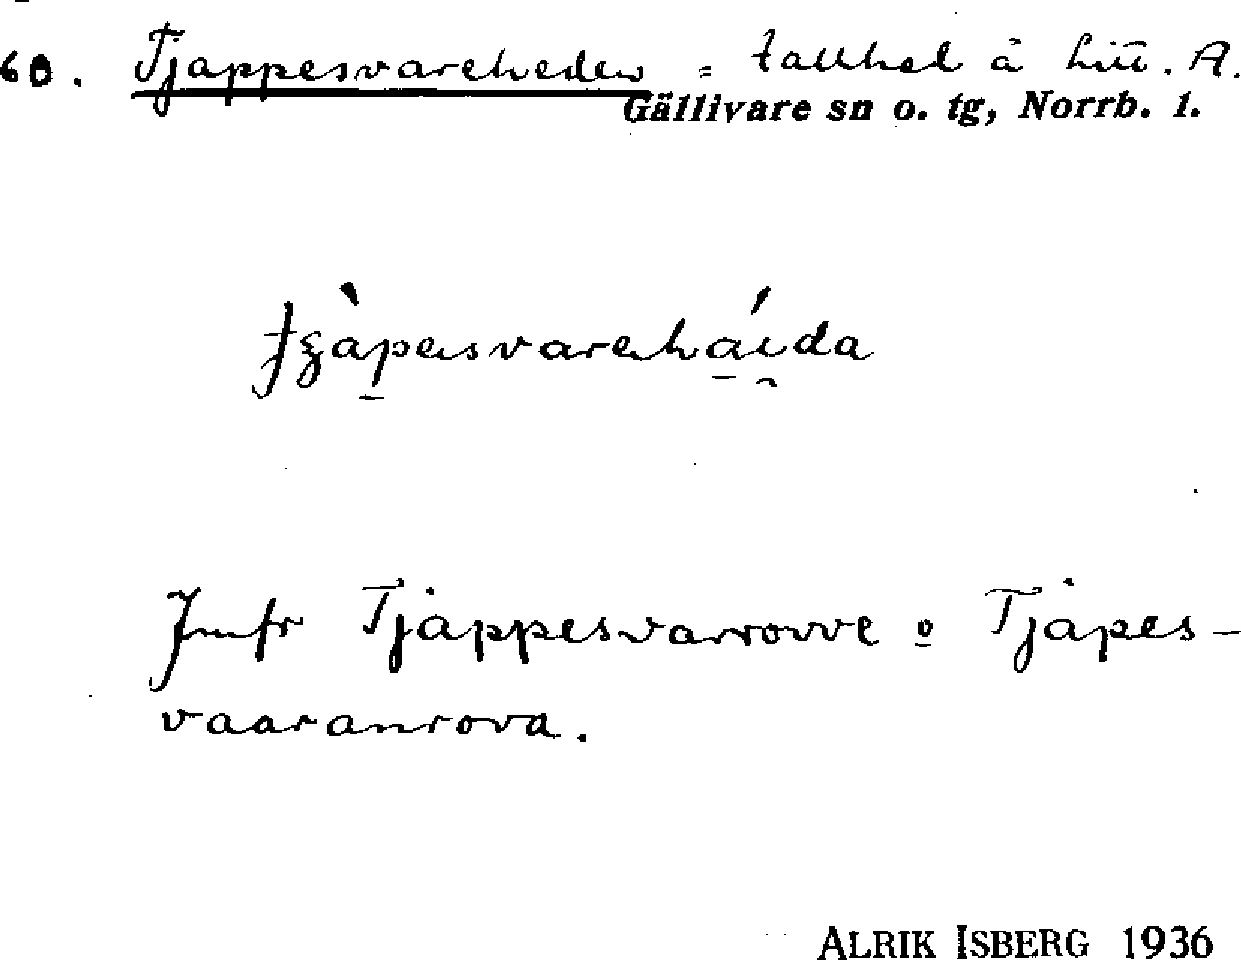 60. Tjappesvareheden = tallhed å litt. A.
Gällivare sn o. tg, Norrb. l.
Jmfr Tjåppesvarrovve o Tjåpes-
vaaranrova.
ALRIK ISBERG 1936